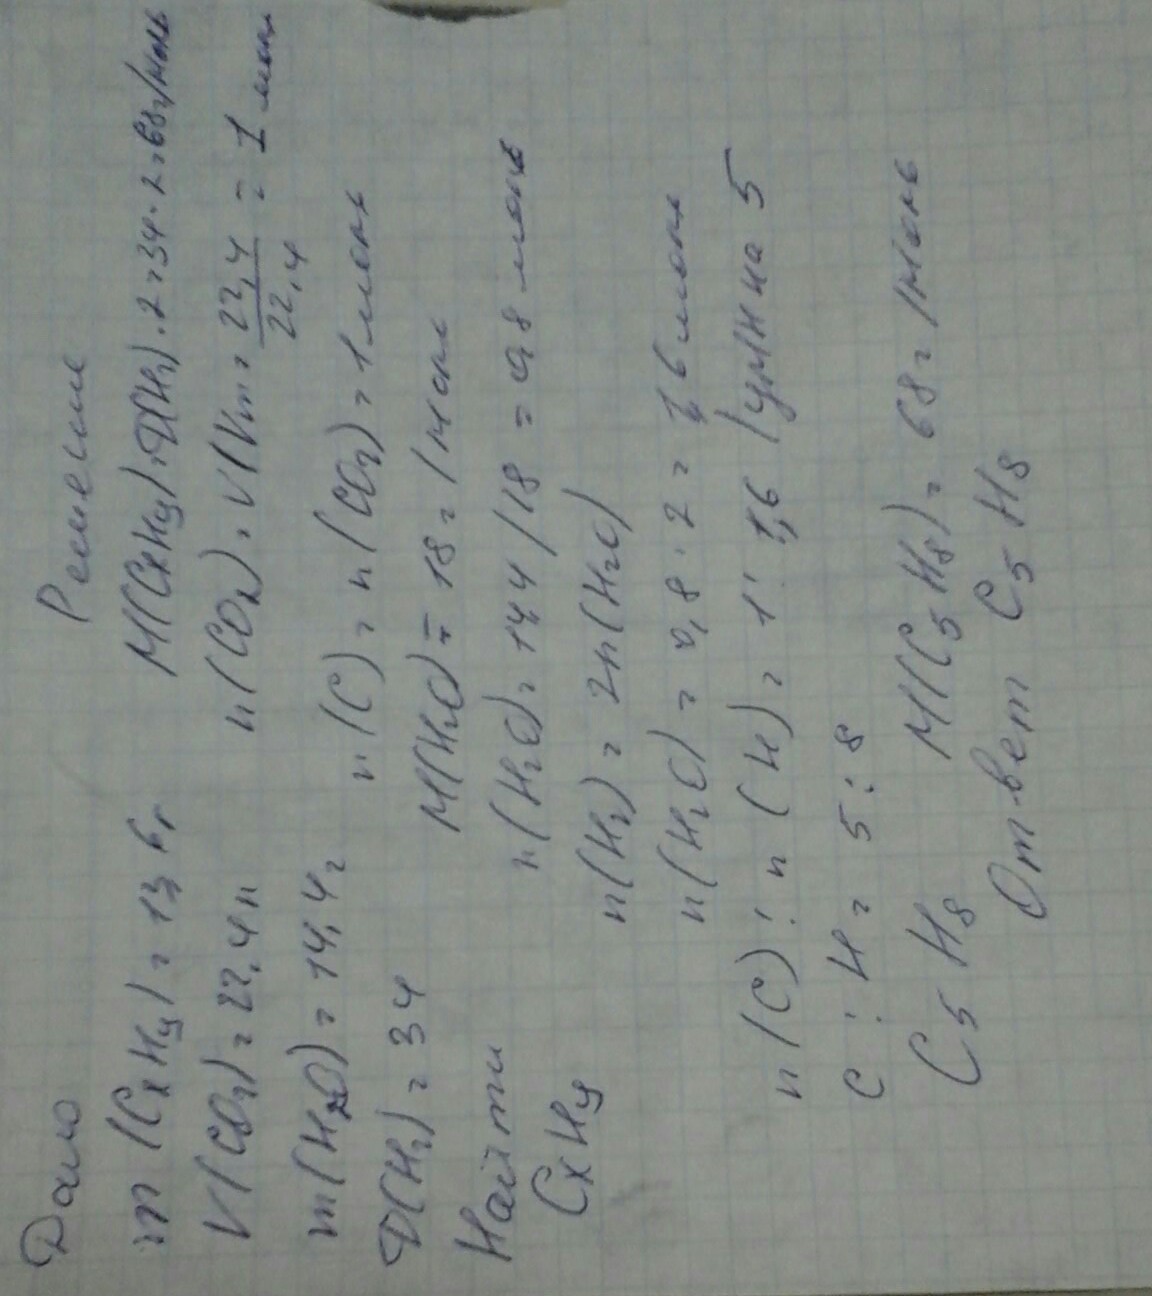 Дано
m (CxHy) = 13 6г
V(CO2) = 22,4л
m(H2O) = 14,4г
D(H2) = 34
Найти
CxHy
Решение
M(CxHy)=D(H2)·2=34·2=68г/моль
n(CO2)=V/Vm= 22,4/22,4 = 1 моль
n(C) = n(CO2) = 1 моль
M(H2O) = 18г/моль
n(H2O) = 14 4/18 = 0,8 моль
n(H2) = 2n(H2O)
n(H2O) = 0,8·2 = 1,6 моль
n(C):n(H) = 1:1,6 /умн на 5
C:H = 5:8
C5H8 M(C5H8) = 68г/моль
Ответ C5H8